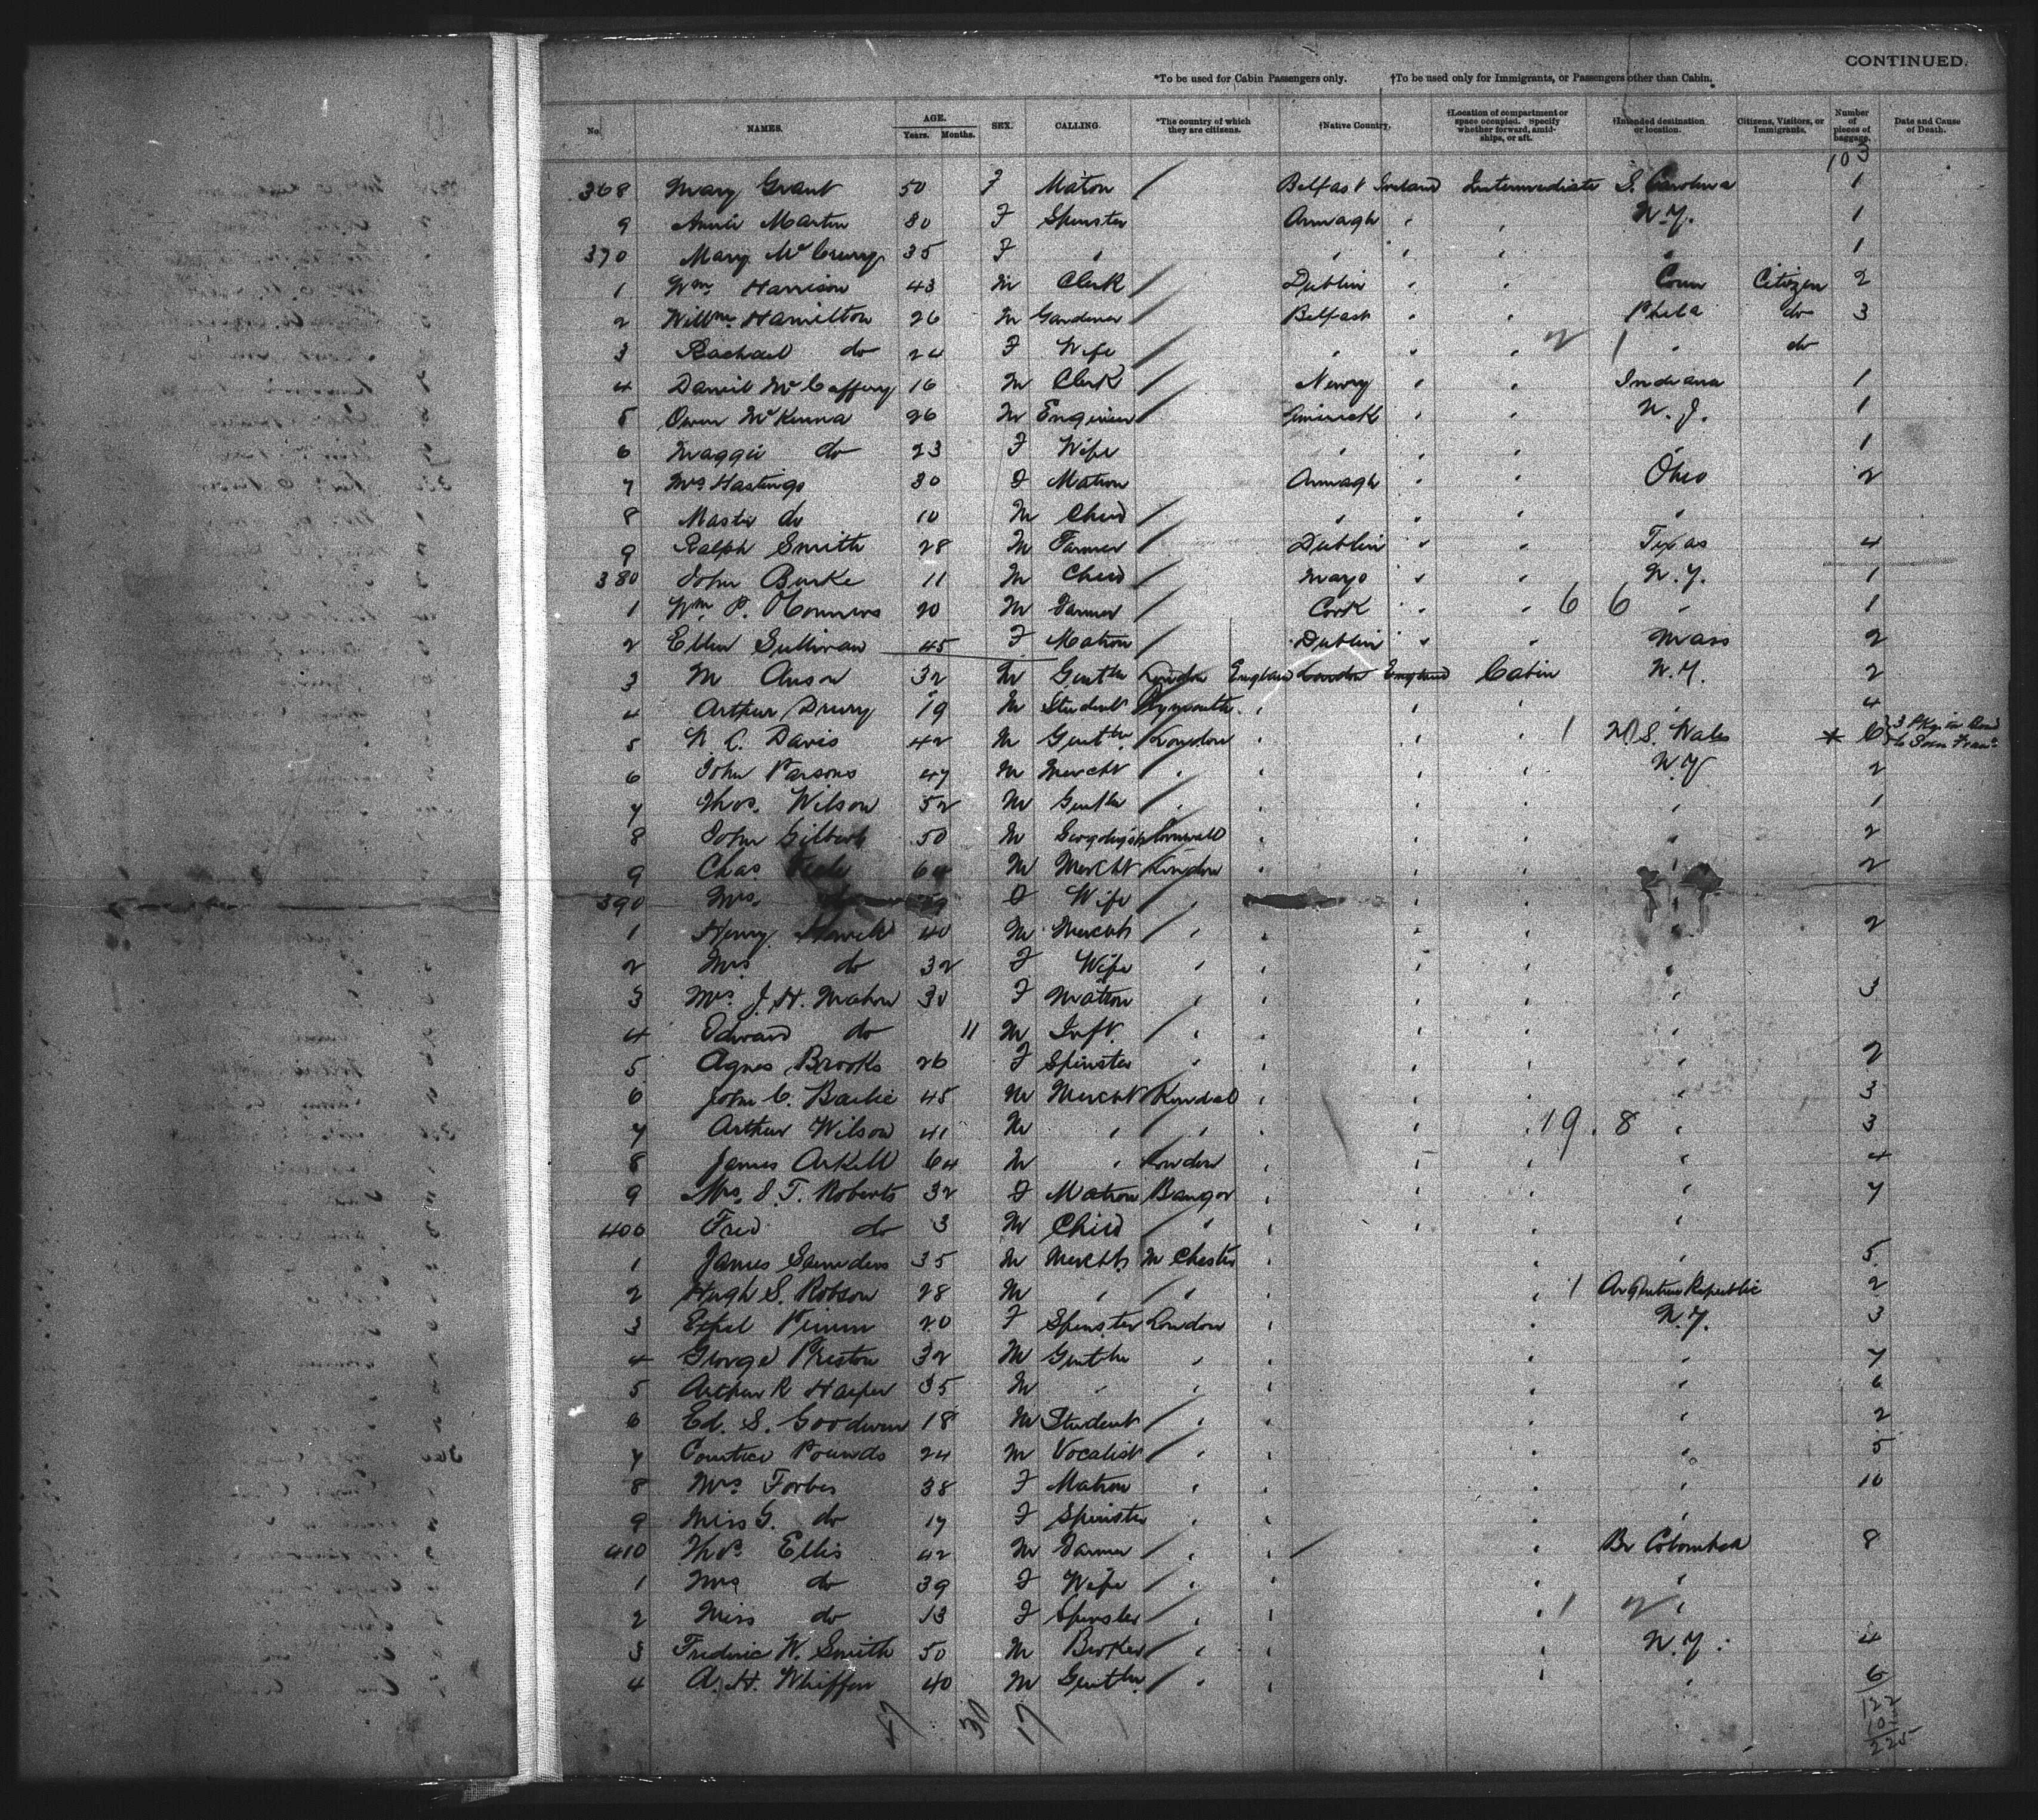 CONTINUED.
*To be used for Cabin Passengers only. †To be used only for Immigrants, or Passengers other than Cabin.
No. NAMES. AGE. Years. Months. SEX. CALLING. *The country of which they are citizens. †Native Country. †Location of compartment or space occupied. Specify whether forward, amidships, or aft. †Intended destination or location. Citizens, Visitors, or Immigrants. Number of pieces of baggage. Date and Cause of Death.
103
368 Mary Grant 50 F Maton Belfast Ireland Intermediate S. Carolina 1
9 Annie Martin 30 F Spinster Armagh " " N.Y. 1
370 Mary McCreery 35 F " " " " " 1
1 Wm Harrison 43 M Clerk Dublin " " Conn Citizen 2
2 Willm Hamilton 26 M Gardener Belfast " " Phila do 3
3 Rachael do 24 F Wife " " " 2 1 " do
4 Daniel McCaffery 16 M Clerk Newry " " Indiana 1
5 Owen McKenna 26 M Engineer " " N.J. 1
6 Maggie do 23 F Wife " " " " 1
7 Mrs Hastings 30 F Matron Armagh " " Ohio 2
8 Master do 10 M Child " " " "
9 Ralph Smith 28 M Farmer Dublin " " Texas 4
380 John Burke 11 M Child Mayo " " N.Y. 1
1 Wm P. OConnors 20 M Farmer Cork " " 6 6 " 1
2 Ellen Sullivan 45 F Matron Dublin " " Mass 2
3 M Anson 32 M Gentln London England London England Cabin N.Y. 2
4 Arthur Drury 19 M Student Plymouth " " " " 4
5 N. C. Davis 42 M Gentln London " " " 1 N.S. Wales * 6 3 Pkgs in Bond to San Fran
6 John Parsons 47 M Mercht " " " " N.Y 2
7 Thos. Wilson 52 M Gentln " " " " " 1
8 John Gilbert 50 M Cornwall " " " " 2
9 Chas 64 M Mercht London " " " " 2
390 Mrs. F Wife " " " "
1 Henry 40 M Mercht " " " " " 2
2 Mrs do 32 F Wife " " " " "
3 Mrs. J. H. Mahon 30 F Matron " " " " " 3
4 Edward do 11 M Inft. " " " " "
5 Agnes Brooks 26 F Spinster " " " " " 2
6 John C. Bailie 45 M Mercht Kendal " " " " 3
7 Arthur Wilson 41 M " " " " " 19 8 " 3
8 James Arkell 64 M " London " " " " 4
9 Mrs. S T. Roberts 32 F Matron Bangor " " " " 7
400 Fred do 3 M Child " " " " "
1 James Saunders 35 M Mercht M Chester " " " 5
2 Hugh S. Robson 28 M " " " " 1 Argentine Republic 2
3 Ethel 20 F Spinster London " " N.Y. 3
4 George Preston 32 M Gentln " " " " 7
5 Arthur R Harper 35 M " " " " " 6
6 Ed. S. Goodwin 18 M Student " " " " 2
7 Courtice Pounds 24 M Vocalist " " " " 5
8 Mrs Forbes 38 F Matron " " " " 10
9 Miss G. do 17 F Spinster " " " "
410 Thos Ellis 42 M Farmer " " " Br Colombea 8
1 Mrs do 39 F Wife " " " "
2 Miss do 13 F Spinster " " " 1 2 "
3 Frederic W. Smith 50 M Broker " " " N.Y. 4
4 A. H. Whiffen 40 M Gentln " " " " 6
47 30 17
122
103
225